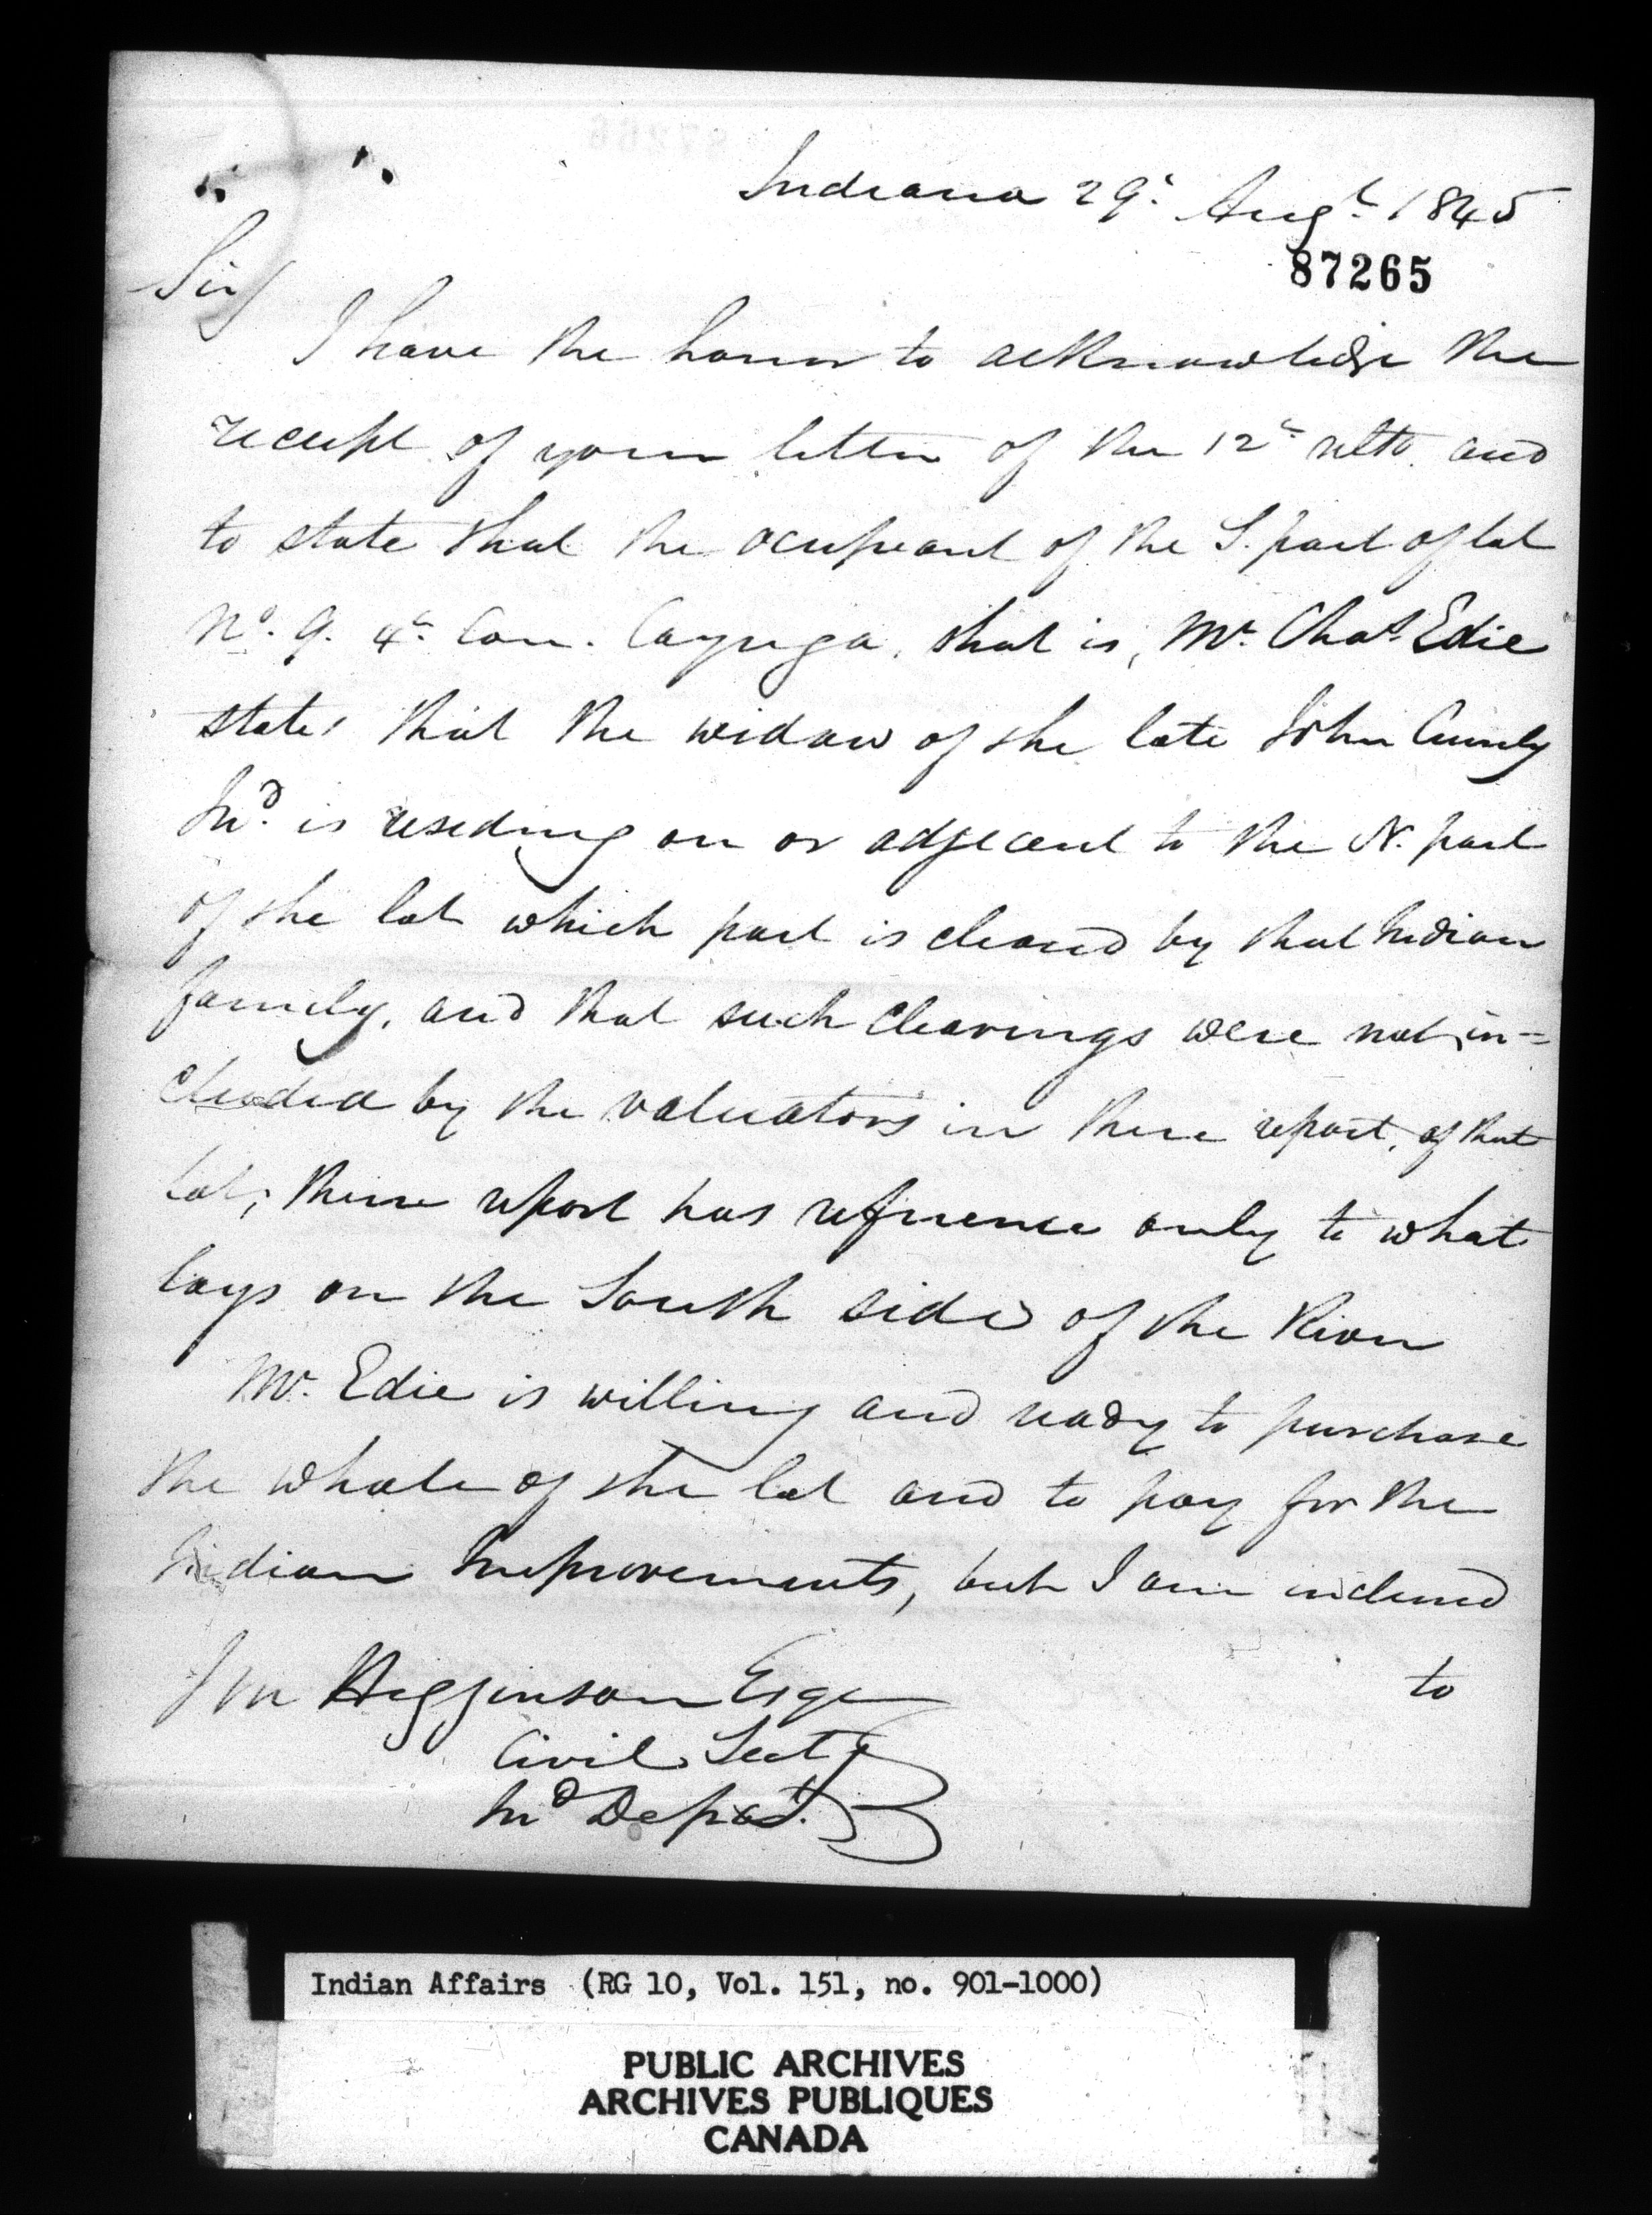 Indiana 29th Augt 1845
87265
Sir/
I have the honor to acknowledge the
receipt of your letter of the 12th ulto. and
to state that the occupeant of the S. part of lot
No. 9. 4th Con. Cayuga, that is, Mr. Chas. Edie
states that the widow of the late John
Ind. is reseding on or adjecent to the N. part
of the lot which part is cleared by that Indian
family, and that such clearings were not in=
cluded by the valuators in there report, of that
lot; there report has refrence only to what
lays on the South side of the River
Mr. Edie is willing and ready to purchase
the whole of the lot and to pay for the
Indian Improvements, but I am inclined
to
J M Higginson Esqr
Civil Secty
Ind Depart.
Indian Affairs (RG 10, Vol. 151, no. 901-1000)
PUBLIC ARCHIVES
ARCHIVES PUBLIQUES
CANADA